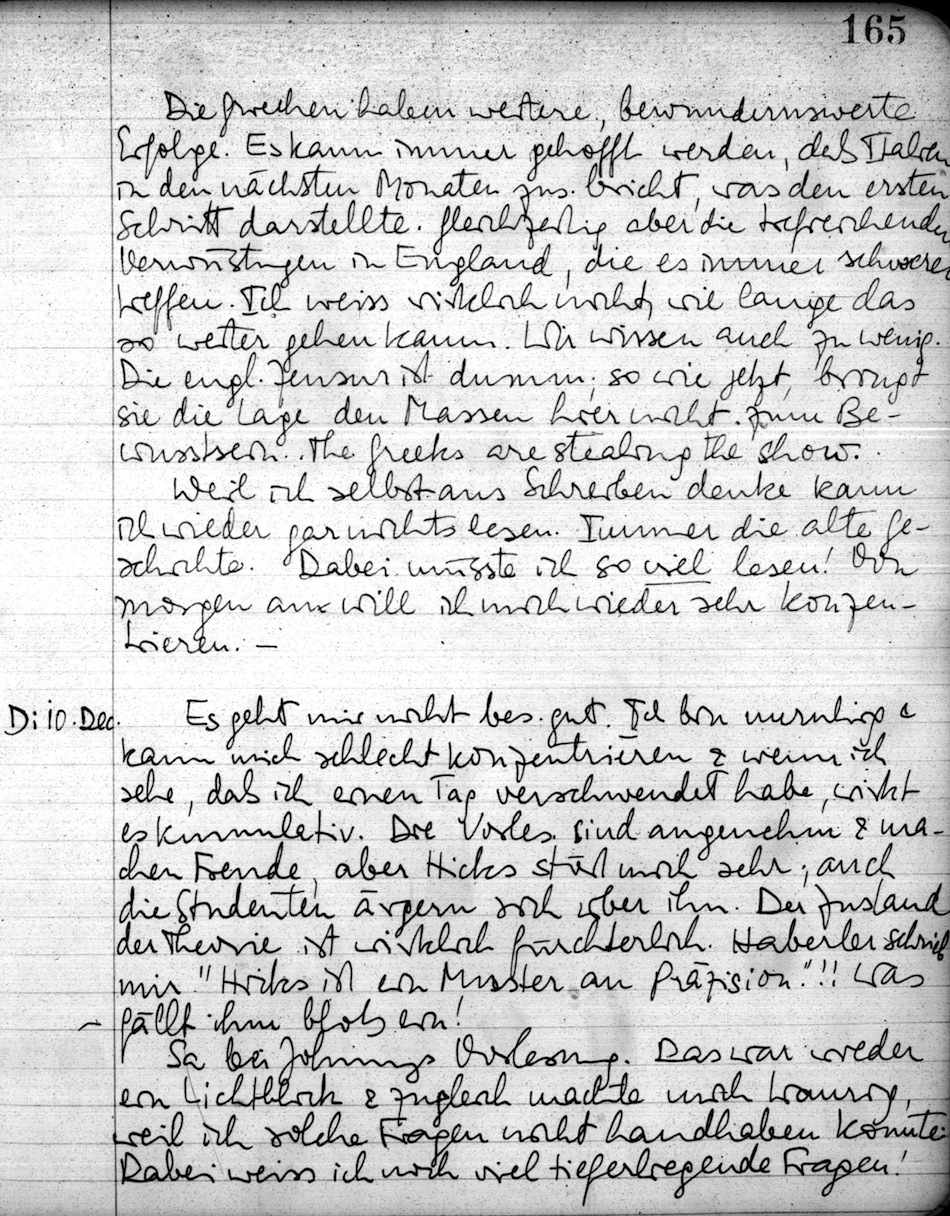 165
Die Griechen haben weitere, bewundernswerte
Erfolge. Es kann immer gehofft werden, daß Italien
in den nächsten Monaten zus. bricht, was den ersten
Schritt darstellte. Gleichzeitig aber die tiefreichenden
Verwüstungen in England, die es immer schwerer
treffen. Ich weiss wirklich nicht, wie lange das
so weiter gehen kann. Wir wissen auch zu wenig.
Die engl. Zensur ist dumm; so wie jetzt, bringt
sie die Lage den Massen hier nicht zum Be-
wusstsein. The Greeks are stealing the show.
Weil ich selbst ans Schreiben denke kann
ich wieder gar nichts lesen. Immer die alte Ge-
schichte. Dabei müsste ich so viel lesen! Von
morgen an will ich mich wieder sehr konzen-
trieren. —
Di 10. Dec. Es geht mir nicht bes. gut. Ich bin unruhig &
kann mich schlecht konzentrieren & wenn ich
sehe, daß ich einen Tag verschwendet habe, wirkt
es kumulativ. Die Vorles. sind angenehm & ma-
chen Freude, aber Hicks stört mich sehr; auch
die Studenten ärgern sich über ihn. Der Zustand
der Theorie ist wirklich fürchterlich. Haberler schrieb
mir "Hicks ist ein Muster an Präzision"!! Was
fällt ihm bloß ein!
Sa bei Johnnys Vorlesung. Das war wieder
ein Lichtblick & zugleich machte mich traurig,
weil ich solche Fragen nicht handhaben könnte.
Dabei weiss ich noch viel tieferliegende Fragen!